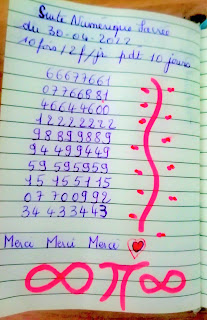 Suite Numerique Sacrée
du 30-04-2022
10 fois / 2f / jr pdt 10 jours
66677661
07766881
46644600
12222222
98889889
94499449
59595959
15155115
07700992
34433443
Merci Merci Merci
∞ π ∞